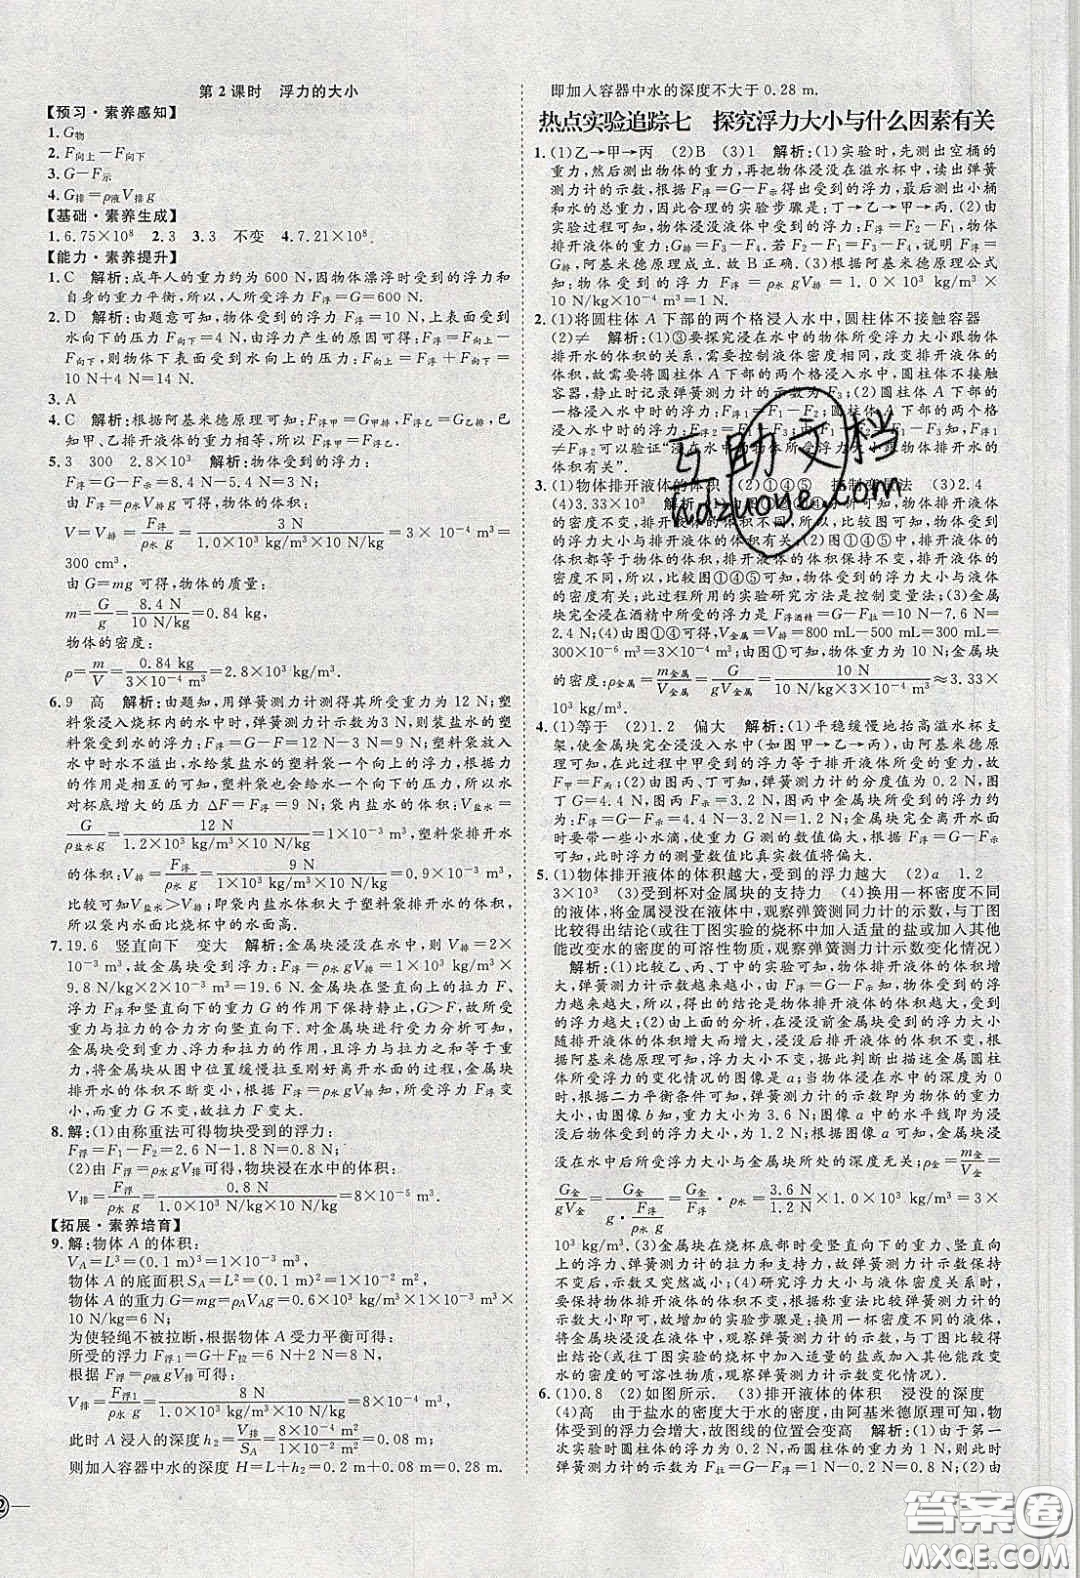 第2课时　浮力的大小
【预习·素养感知】
1.G物
2.F向上－F向下
3.G－F示
4.G排＝ρ液V排g
【基础·素养生成】
1.6.75×10⁸　2.3　3.3　不变　4.7.21×10⁸.
【能力·素养提升】
1.C　解析:成年人的重力约为600 N,因物体漂浮时受到的浮力和
自身的重力平衡,所以,人所受浮力F浮＝G＝600 N.
2.D　解析:由题意可知,物体受到的浮力F浮＝10 N,上表面受到
水向下的压力F向下＝4 N,由浮力产生的原因可得:F浮＝F向上－
F向下,则物体下表面受到水向上的压力:F向上＝F浮＋F向下＝
10 N＋4 N＝14 N.
3.A
4.C　解析:根据阿基米德原理可知,F浮甲＝G甲排,F浮乙＝G乙排,已
知甲、乙排开液体的重力相等,所以F浮甲＝F浮乙.
5.3　300　2.8×10³　解析:物体受到的浮力:
F浮＝G－F浮＝8.4 N－5.4 N＝3 N.
由F浮＝ρ水gV排得,物体的体积:
V＝V排＝F浮/ρ水g＝3 N/1.0×10³ kg/m³×10 N/kg＝3×10⁻⁴ m³＝
300 cm³,
由G＝mg可得,物体的质量:
m＝G/g＝8.4 N/10 N/kg＝0.84 kg,
物体的密度:
ρ＝m/V＝0.84 kg/3×10⁻⁴ m³＝2.8×10³ kg/m³.
6.9　高　解析:由题知,用弹簧测力计测得其所受重力为12 N;塑
料袋浸入烧杯内的水中时,弹簧测力计示数为3 N,则装盐水的塑
料袋受到水的浮力:F浮＝G－F＝12 N－3 N＝9 N;塑料袋放入
水中时水不动,水将装盐水的塑料袋一个向上的浮力,因为力
的作用是相互的可知,塑料袋会给水一个向下的压力,所以,水
对杯底增大的压力ΔF＝F浮＝9 N;袋内盐水的体积:V盐水＝
G/ρ盐水g＝12 N/1.2×10³ kg/m³×10 N/kg＝1×10⁻³ m³,塑料袋排开水
的体积:V排＝F浮/ρ水g＝9 N/1×10³ kg/m³×10 N/kg＝0.9×10⁻³ m³,
比较可知V盐水＞V排,表明,袋内盐水体积大于袋排开水的体积,
所以袋内水面比烧杯中的水面高.
7.19.6　竖直向下　变大　解析:金属块浸没在水中,V排＝V＝2×
10⁻³ m³,故金属块所受浮力F浮＝ρ水gV排＝1.0×10³ kg/m³×
9.8 N/kg×2×10⁻³ m³＝19.6 N.金属块在竖直向上的拉力F、
浮力F浮和竖直向下的重力G的作用下保持静止,G＞F,故所受
重力与拉力的合力方向竖直向下.对金属块进行受力分析可知,
金属块受到重力、浮力和拉力的作用,且浮力与拉力的合力与重力
平衡,将金属块从图中位置缓慢拉至刚好离开水面的过程,金属块
排开水的体积不断变小,根据F浮＝ρ水gV排可知,所受浮力F浮变
小,而重力G不变,故拉力F变大.
8.解:(1)由称重法可得物块受到的浮力:
F浮＝F₁－F₂＝2.6 N－1.8 N＝0.8 N.
(2)由F浮＝ρ水gV排可得,物块浸在水中的体积:
V排＝F浮/ρ水g＝0.8 N/1.0×10³ kg/m³×10 N/kg＝8×10⁻⁵ m³.
【拓展·素养培育】
9.解:物体A的体积:
VA＝L³＝(0.1 m)³＝1×10⁻³ m³,
物体A的底面积SA＝L²＝(0.1 m)²＝1×10⁻² m²,
物体A的重力G＝mg＝ρAVAg＝0.6×10³ kg/m³×1×10⁻³ m³
×10 N/kg＝6 N;
为使轻绳不被拉断,根据物体A受力平衡可得:
所受的浮力F浮1＝G＋F拉＝6 N＋2 N＝8 N;
根据F浮＝ρ液gV排可得:
V排＝F浮1/ρ水g＝8 N/1.0×10³ kg/m³×10 N/kg＝8×10⁻⁴ m³,
此时A浸入的深度h₂＝V排/SA＝8×10⁻⁴ m³/1×10⁻² m²＝0.08 m;
则加入容器中水的深度H＝L＋h₂＝0.2 m＋0.08 m＝0.28 m,
即加入容器中水的深度不大于0.28 m.
热点实验追踪七　探究浮力大小与什么因素有关
1.(1)乙→甲→丙　(2)B　(3)1　解析:(1)实验时,先测出空桶的
重力,然后测出物体的重力,再将物体浸没在溢水杯中,读出弹簧
测力计的示数,根据F浮＝G－F示得出受到的浮力,最后测出小桶
和水的总重力,因此合理的实验步骤是:丁→乙→甲→丙.(2)由
实验过程可知,物体受到的浮力:F浮＝F₁－F₃,
物体排开液体的重力:G排＝F₄－F₂.若F₁－F₃＝F₄－F₂,说明F浮＝
G排,阿基米德原理成立.故B正确.(3)由题意可知,物体排开水的
体积V排＝100 cm³,受到的浮力:F浮＝ρ水gV排＝1.0×10³ kg/m³×
10 N/kg×10⁻⁴ m³＝1 N.
2.(1)将圆柱体A下部的两个格浸入水中,圆柱体不接触容器
(2)≠　解析:(1)③要探究浸在水中的物体所受浮力大小跟物体
排开水的体积的关系,需要控制液体密度相同,改变排开液体的体
积,故需要将圆柱体A下部的两个格浸入水中,圆柱体不接触容
器,静止时记录弹簧测力计的示数为F₃;(2)圆柱体A下部的
一格浸入水中时的浮力:F浮1＝F₁－F₂,圆柱体A下部的两个格
浸入水中时的浮力:F浮2＝F₁－F₃,
≠F浮2可以验证“浸在水中的物体所受浮力大小跟物体排开水的
体积有关”.
3.(1)物体排开液体的体积　(2)①④⑤　控制变量法　(3)2.4
(4)3.33×10³
的密度不变,排开液体的体积不同,所以,比较图可知,物体受到
的浮力大小与物体排开液体的体积有关;
体积都等于物体的体积,排开液体的体积保持不变,排开液体的密
度不同,所以,比较图①④⑤可知,物体受到的浮力大小与液体
的密度有关;此过程所用的实验研究方法是控制变量法;(3)金属
块完全浸没在酒精中所受的浮力F浮酒精＝G－F拉＝10 N－7.6 N＝
2.4 N;(4)由图①④可得,V金属＝V排＝800 mL－500 mL＝
300×10⁻⁶ m³＝3×10⁻⁴ m³,由图①可知,物体重力为10 N;金属
块的密度:ρ金属＝m金属/V金属＝G/gV金属＝10 N/10 N/kg×3×10⁻⁴ m³≈3.33×
10³ kg/m³.
4.(1)等于　(2)1.2　偏大　解析:(1)平稳缓慢地抬高溢水杯支
架,使金属块完全浸没入水中(如图甲→乙→丙),由阿基米德原
理可知,在此过程中甲受到的浮力始终等于所排开水的重力,故
F甲＝F乙;(2)由图丙、丁可知,弹簧测力计的分度值为0.2 N,图
丁G＝4.4 N,图丙F示＝3.2 N,图丙中金属块所受的浮力大约
为F浮＝G－F示＝4.4 N－3.2 N＝1.2 N.金属块完全离开水面时
要带一些小水滴,使重力G测的数值偏大,根据F浮＝G－F示可
知,此时浮力的测量数值比真实数值将偏大.
5.(1)物体排开液体的体积越大,受到的浮力越大　(2)a　1.2
3×10³　(3)受到杯对金属块的支持力　(4)换用一杯密度不同
的液体,将金属块浸没在液体中,观察弹簧测同力计的示数,与丁图
比较得出结论(或往丁图实验的烧杯中加入适量的盐或加入其他
能改变水的密度的可溶性物质,观察弹簧测力计示数变化情况)
解析:(1)比较乙、丙、丁中的实验可知,物体排开液体的体积增
大,弹簧测力计示数越来越小,根据F浮＝G－F可知,物体受到的
浮力越来越大,故可得出的结论是物体排开液体的体积越大,受到
的浮力越大;(2)由上面的分析,在浸没前金属块受到的浮力大小
随排开液体的体积增大而增大,浸没后排开液体的体积不变,根据
阿基米德原理可知,浮力大小不变,据此判断出描述金属圆柱
体所受浮力的变化情况的图像是a;当物体浸入水中的深度为0
时,根据二力平衡条件可知,弹簧测力计的示数等于物体的重力
大小,由图像b知,重力大小为3.6 N;图像a中的水平线即为浸
没时受到的浮力大小,为1.2 N;
浸在水中所受浮力大小与金属块所处的深度无关;ρ金＝m金/V金＝
G金/gV金＝G金/(g·F浮/ρ水g)＝G金/F浮·ρ水＝3.6 N/1.2 N×1.0×10³ kg/m³＝3×
10³ kg/m³.(3)金属块在烧杯底部时受竖直向下的重力、竖直向上
的浮力、弹簧测力计的拉力和支持力,若金属块对杯底没有压力,
示数又突然减小;(4)研究浮力大小与液体密度关系时,
要控制物体排开液体的体积不变,根据称重法比较弹簧测力计的
示数大小即可,故增加的实验步骤是:换用一杯密度不同的液体,
将金属块浸没在液体中,观察弹簧测力计的示数,与丁图比较得
出结论(或往丁图实验的烧杯中加入适量的盐或加入其他能改变
水的密度的可溶性物质,观察弹簧测力计示数变化情况).
6.(1)0.8　(2)如图所示.　(3)排开液体的体积　浸没的深度
(4)高　由于盐水的密度大于水的密度,由阿基米德原理可知,
物体受到的浮力会增大,故图线的位置会变高　解析:(1)由于第一
次实验时圆柱体的浮力为0.2 N,而浮力为0.2 N时,弹簧测
力计示数为2.6 N,根据F浮＝G－F示可知,G＝F浮＋F示＝0.2 N＋
互助文档
hdzuoye.com
答案圈
MXQE.COM